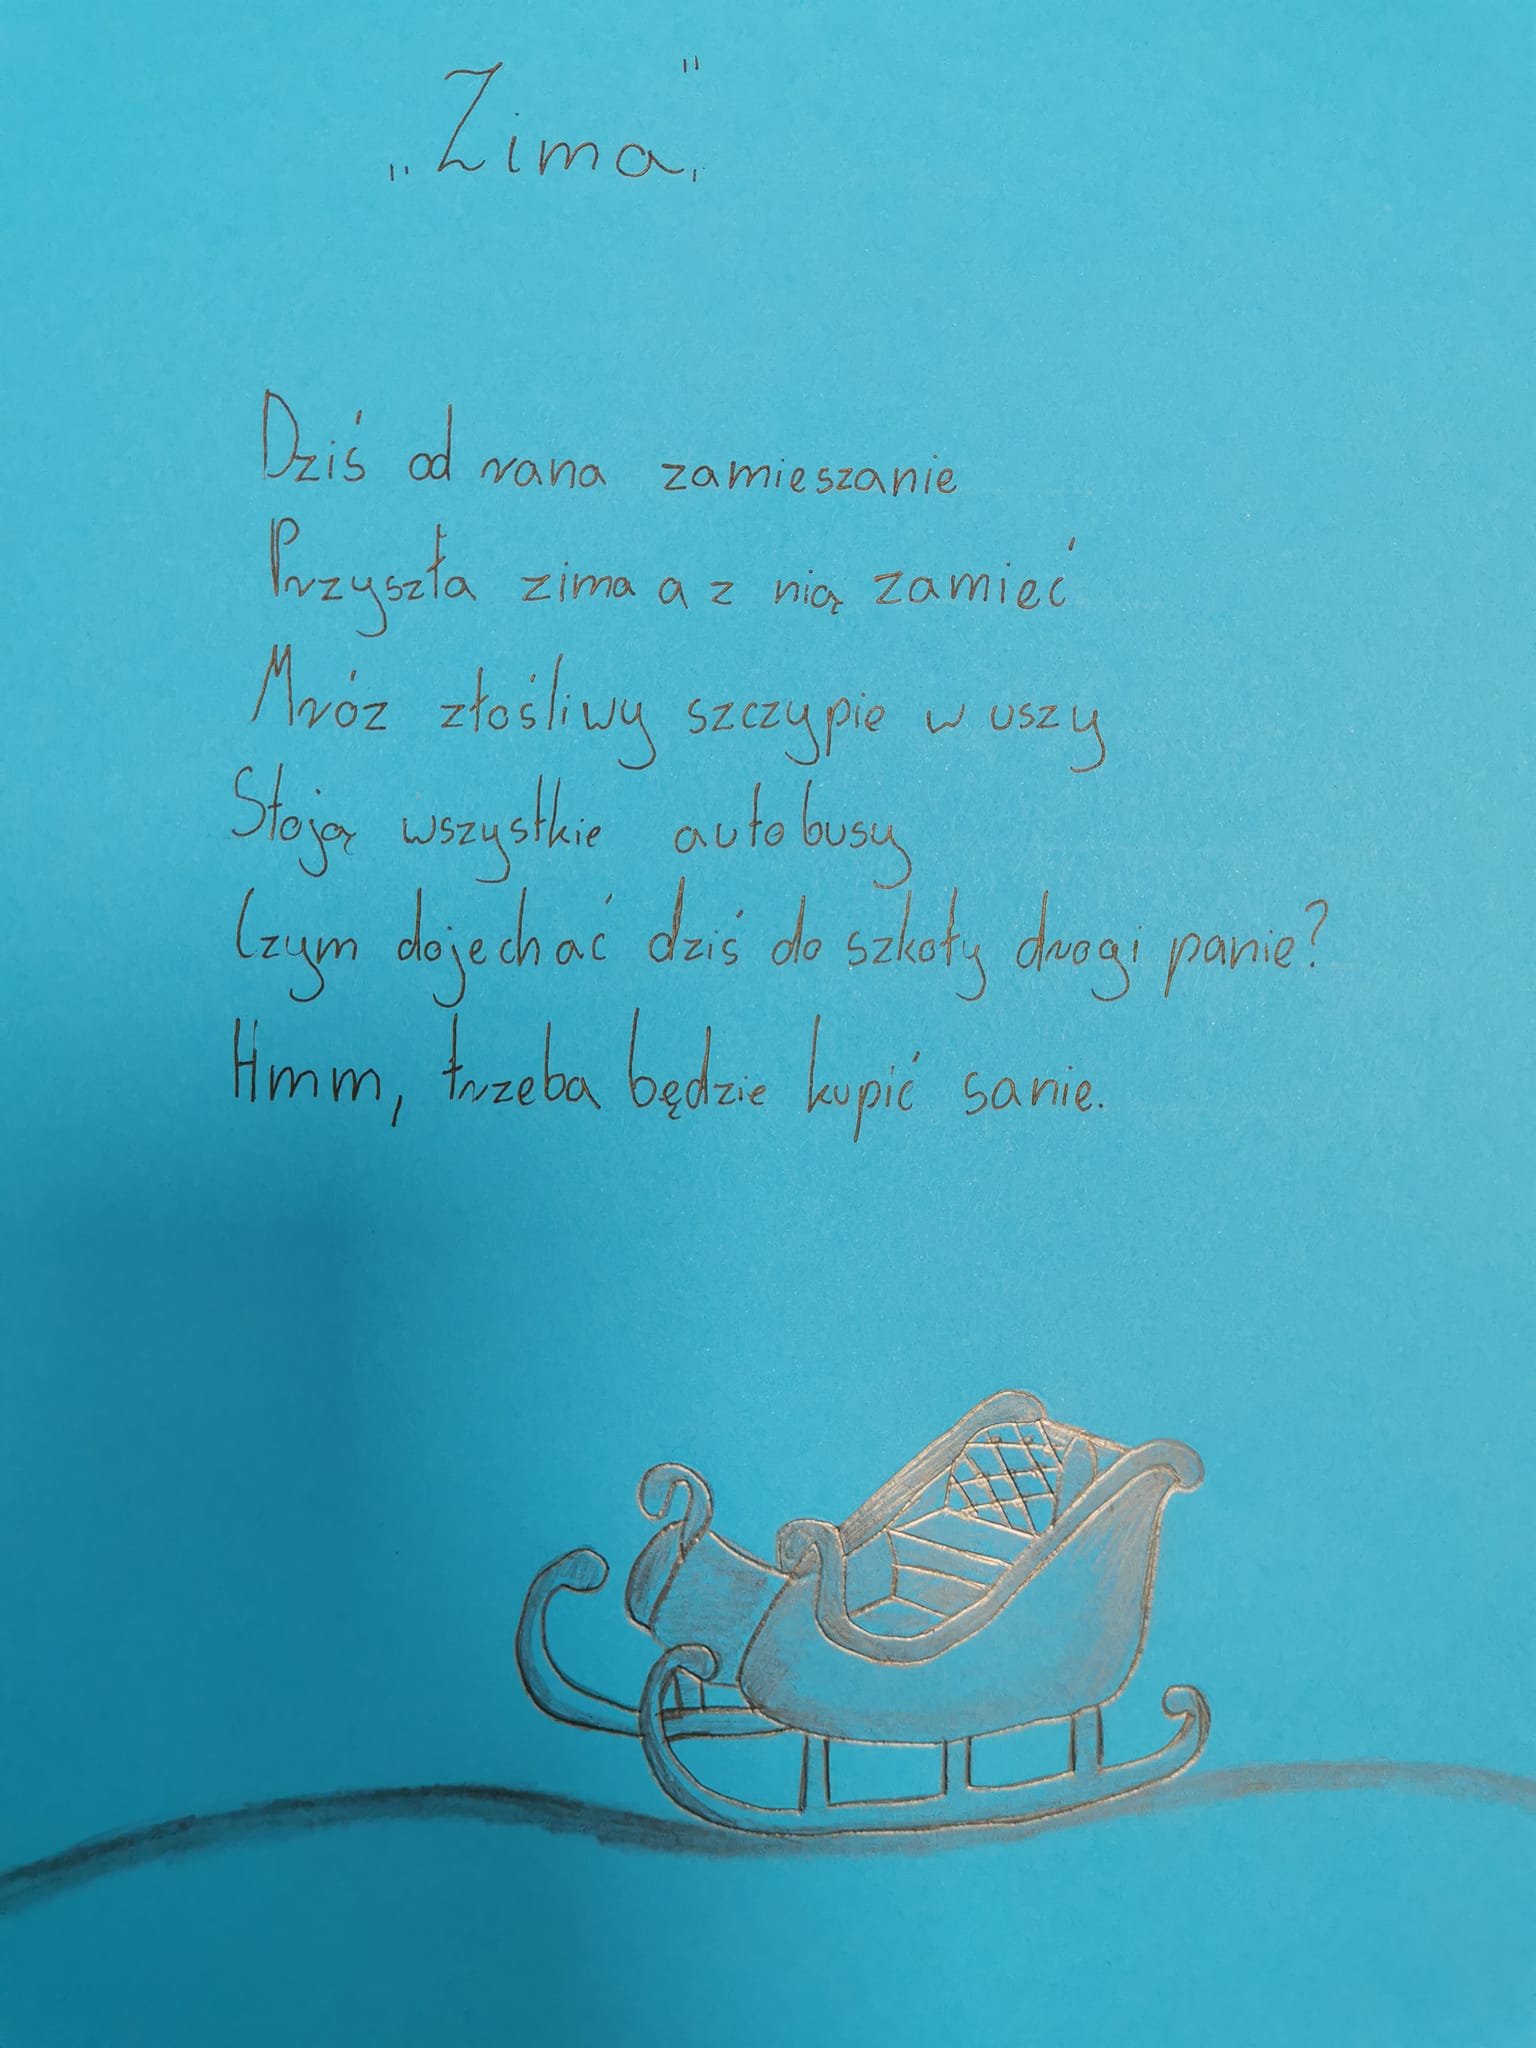 „Zima"
Dziś od rana zamieszanie
Przyszła zima a z nią zamieć
Mróz złośliwy szczypie w uszy
Stoją wszystkie autobusy
Czym dojechać dziś do szkoły drogi panie?
Hmm, trzeba będzie kupić sanie.